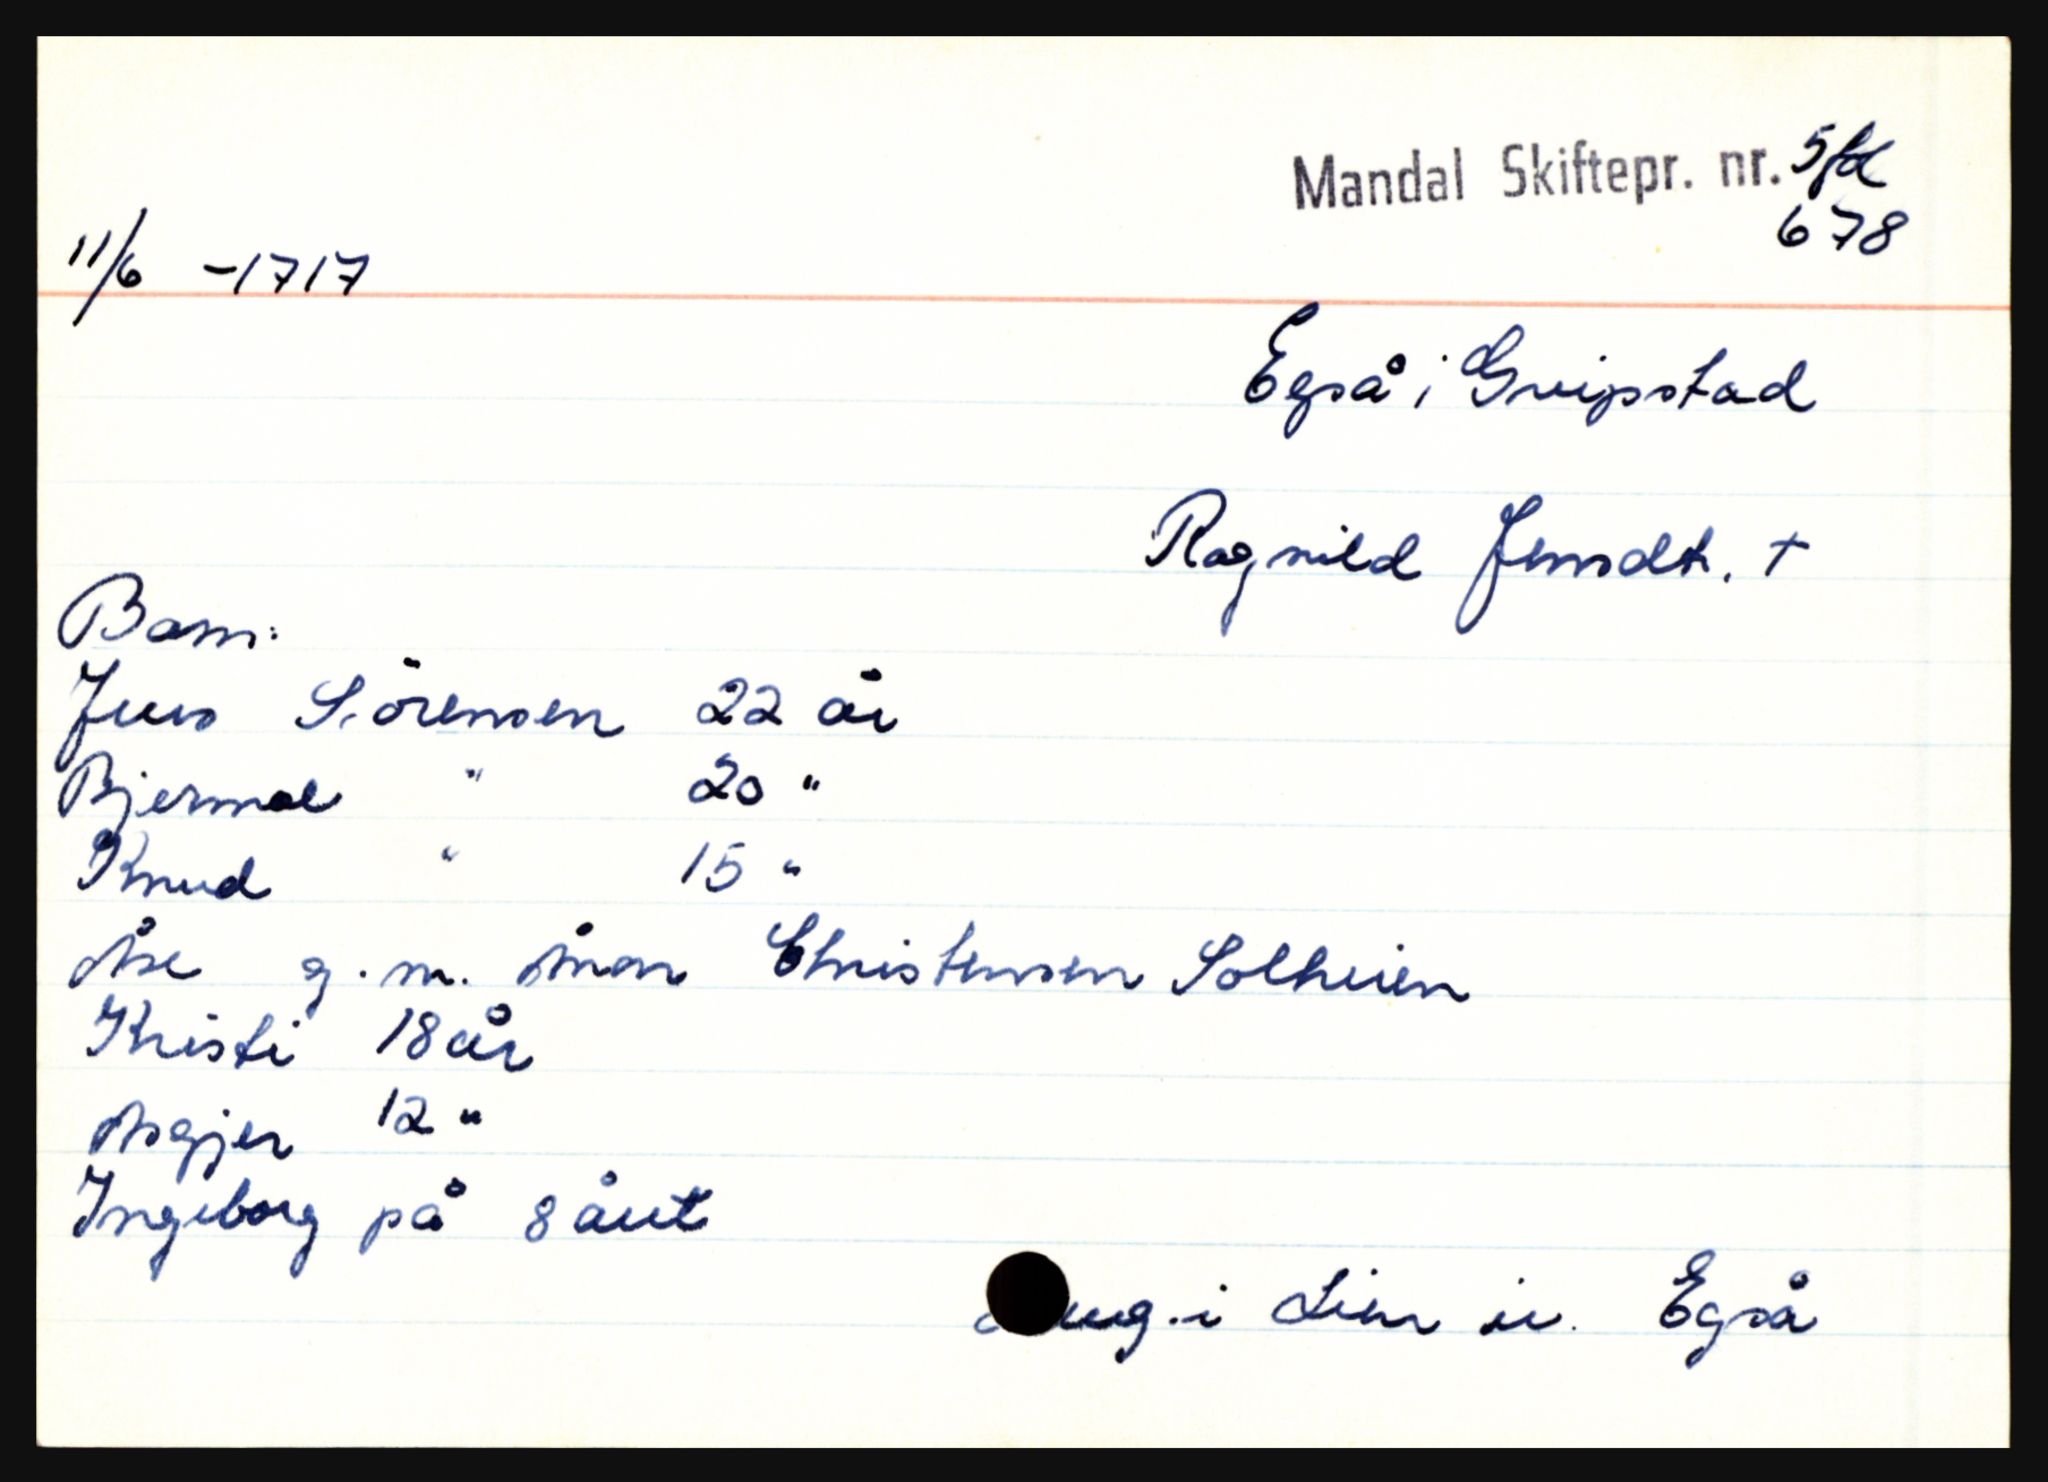 Mandal Skiftepr. nr. 5fol
678
11/6 -1717
Egså i Greipstad
Ragnild Jensdtr. +
Barn:
Jens Sörensen 22 år
Bjermoe " 20 "
Knud " 15 "
Åse g.m. Ånon Christensen Solheien
Kristi 18 år
Asgjer 12 "
Ingeborg på 8 året
i Lien i Egså